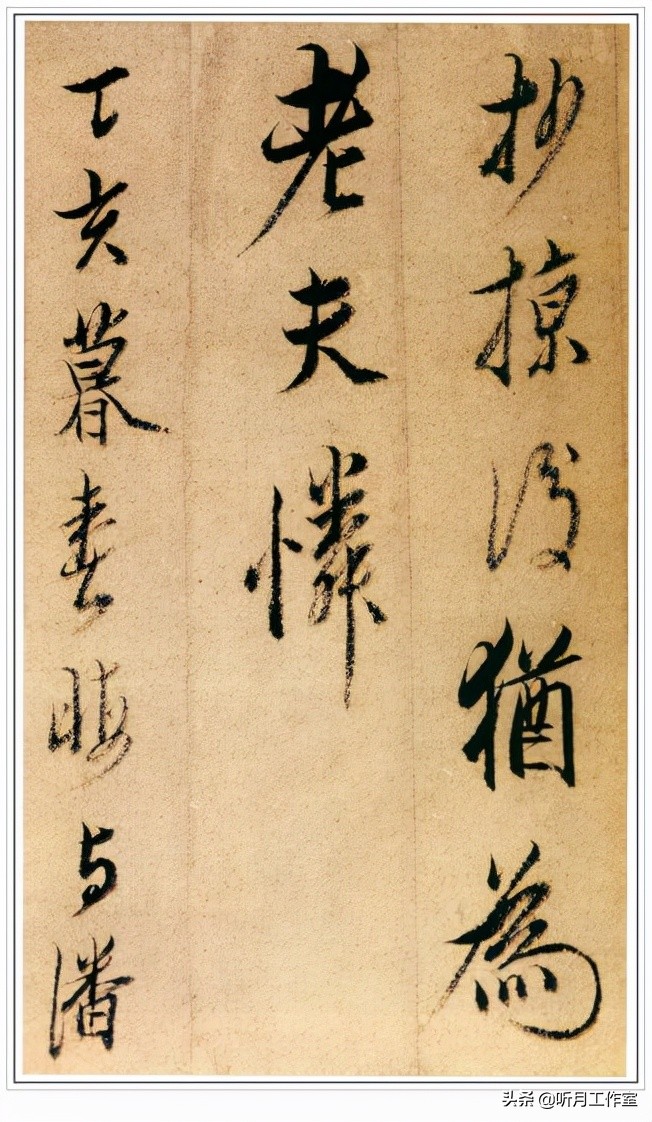 抄掠猶為
老夫憐
丁亥暮春晦与潘
头条 @听月工作室